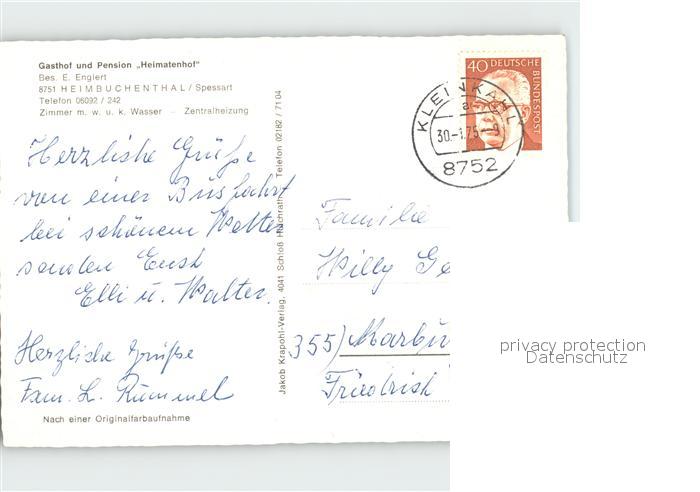 Gasthof und Pension „Heimatenhof"
Bes. E. Englert
8751 HEIMBUCHENTHAL / Spessart
Telefon 06092 / 242
Zimmer m. w. u. k. Wasser - Zentralheizung
40 DEUTSCHE BUNDESPOST
KLEINKAHL
30.-1.75-9
8752
Herzliche Grüße
von einer Busfahrt
bei schönem Wetter
senden Euch
Elli u. Walter.
Herzliche Grüße
Fam. L. Rümmel
Nach einer Originalfarbaufnahme
Jakob Krapohl-Verlag, 4041 Schloß Hülchrath, Telefon 02182 / 7104
Familie
Willy Ge
355) Marbu
Friedrich
privacy protection
Datenschutz